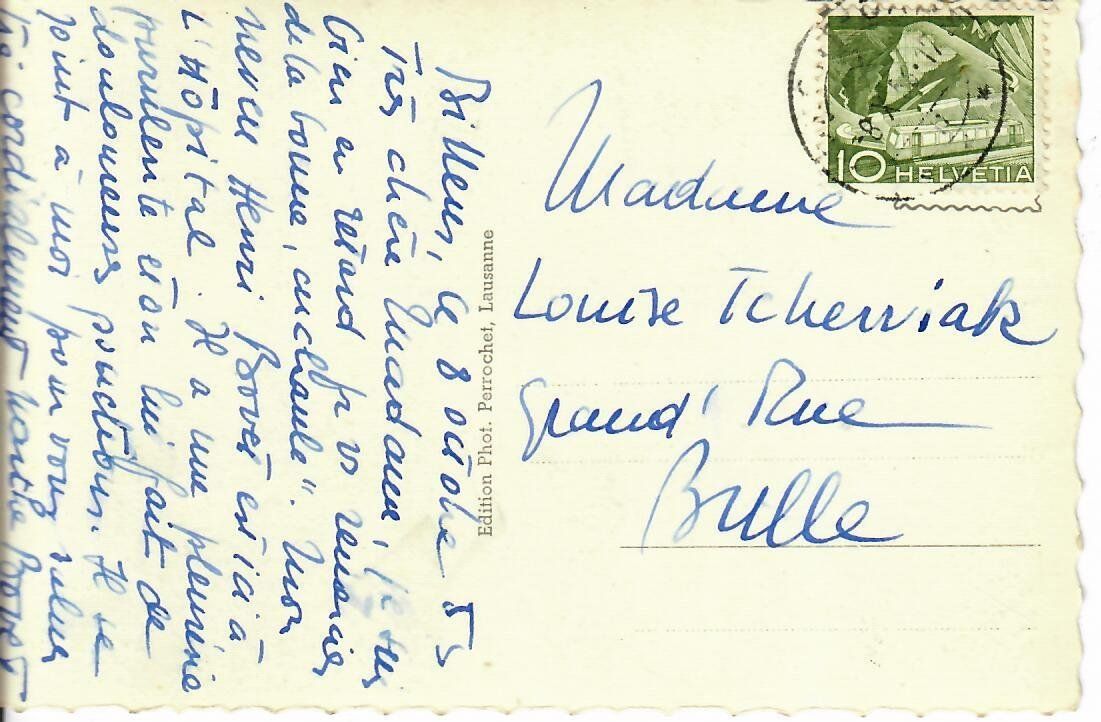 le 8 octobre 55
Très chère Madame, je suis
bien en retard pr vs remercier
de la bonne "cuchaule". Mon
neveu Henri Bovet est ici à
L'Hôpital. Il a une pleurésie
purulente et on lui fait de
douloureuses ponctions. Il se
joint à moi pour vous saluer
très cordialement Marthe Bovet
Edition Phot. Perrochet, Lausanne
10 HELVETIA
Madame
Louise Tcherviak
Grand' Rue
Bulle